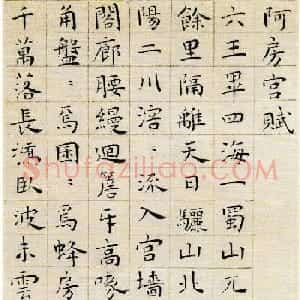 阿房宫賦
六王畢四海一蜀山兀
餘里隔離天日驪山北
陽二川溶〻流入宫墙
閣廊腰縵迴簷牙高啄
角盤〻焉囷〻焉蜂房
千萬落長橋臥波未雲
Shufaziliao.com